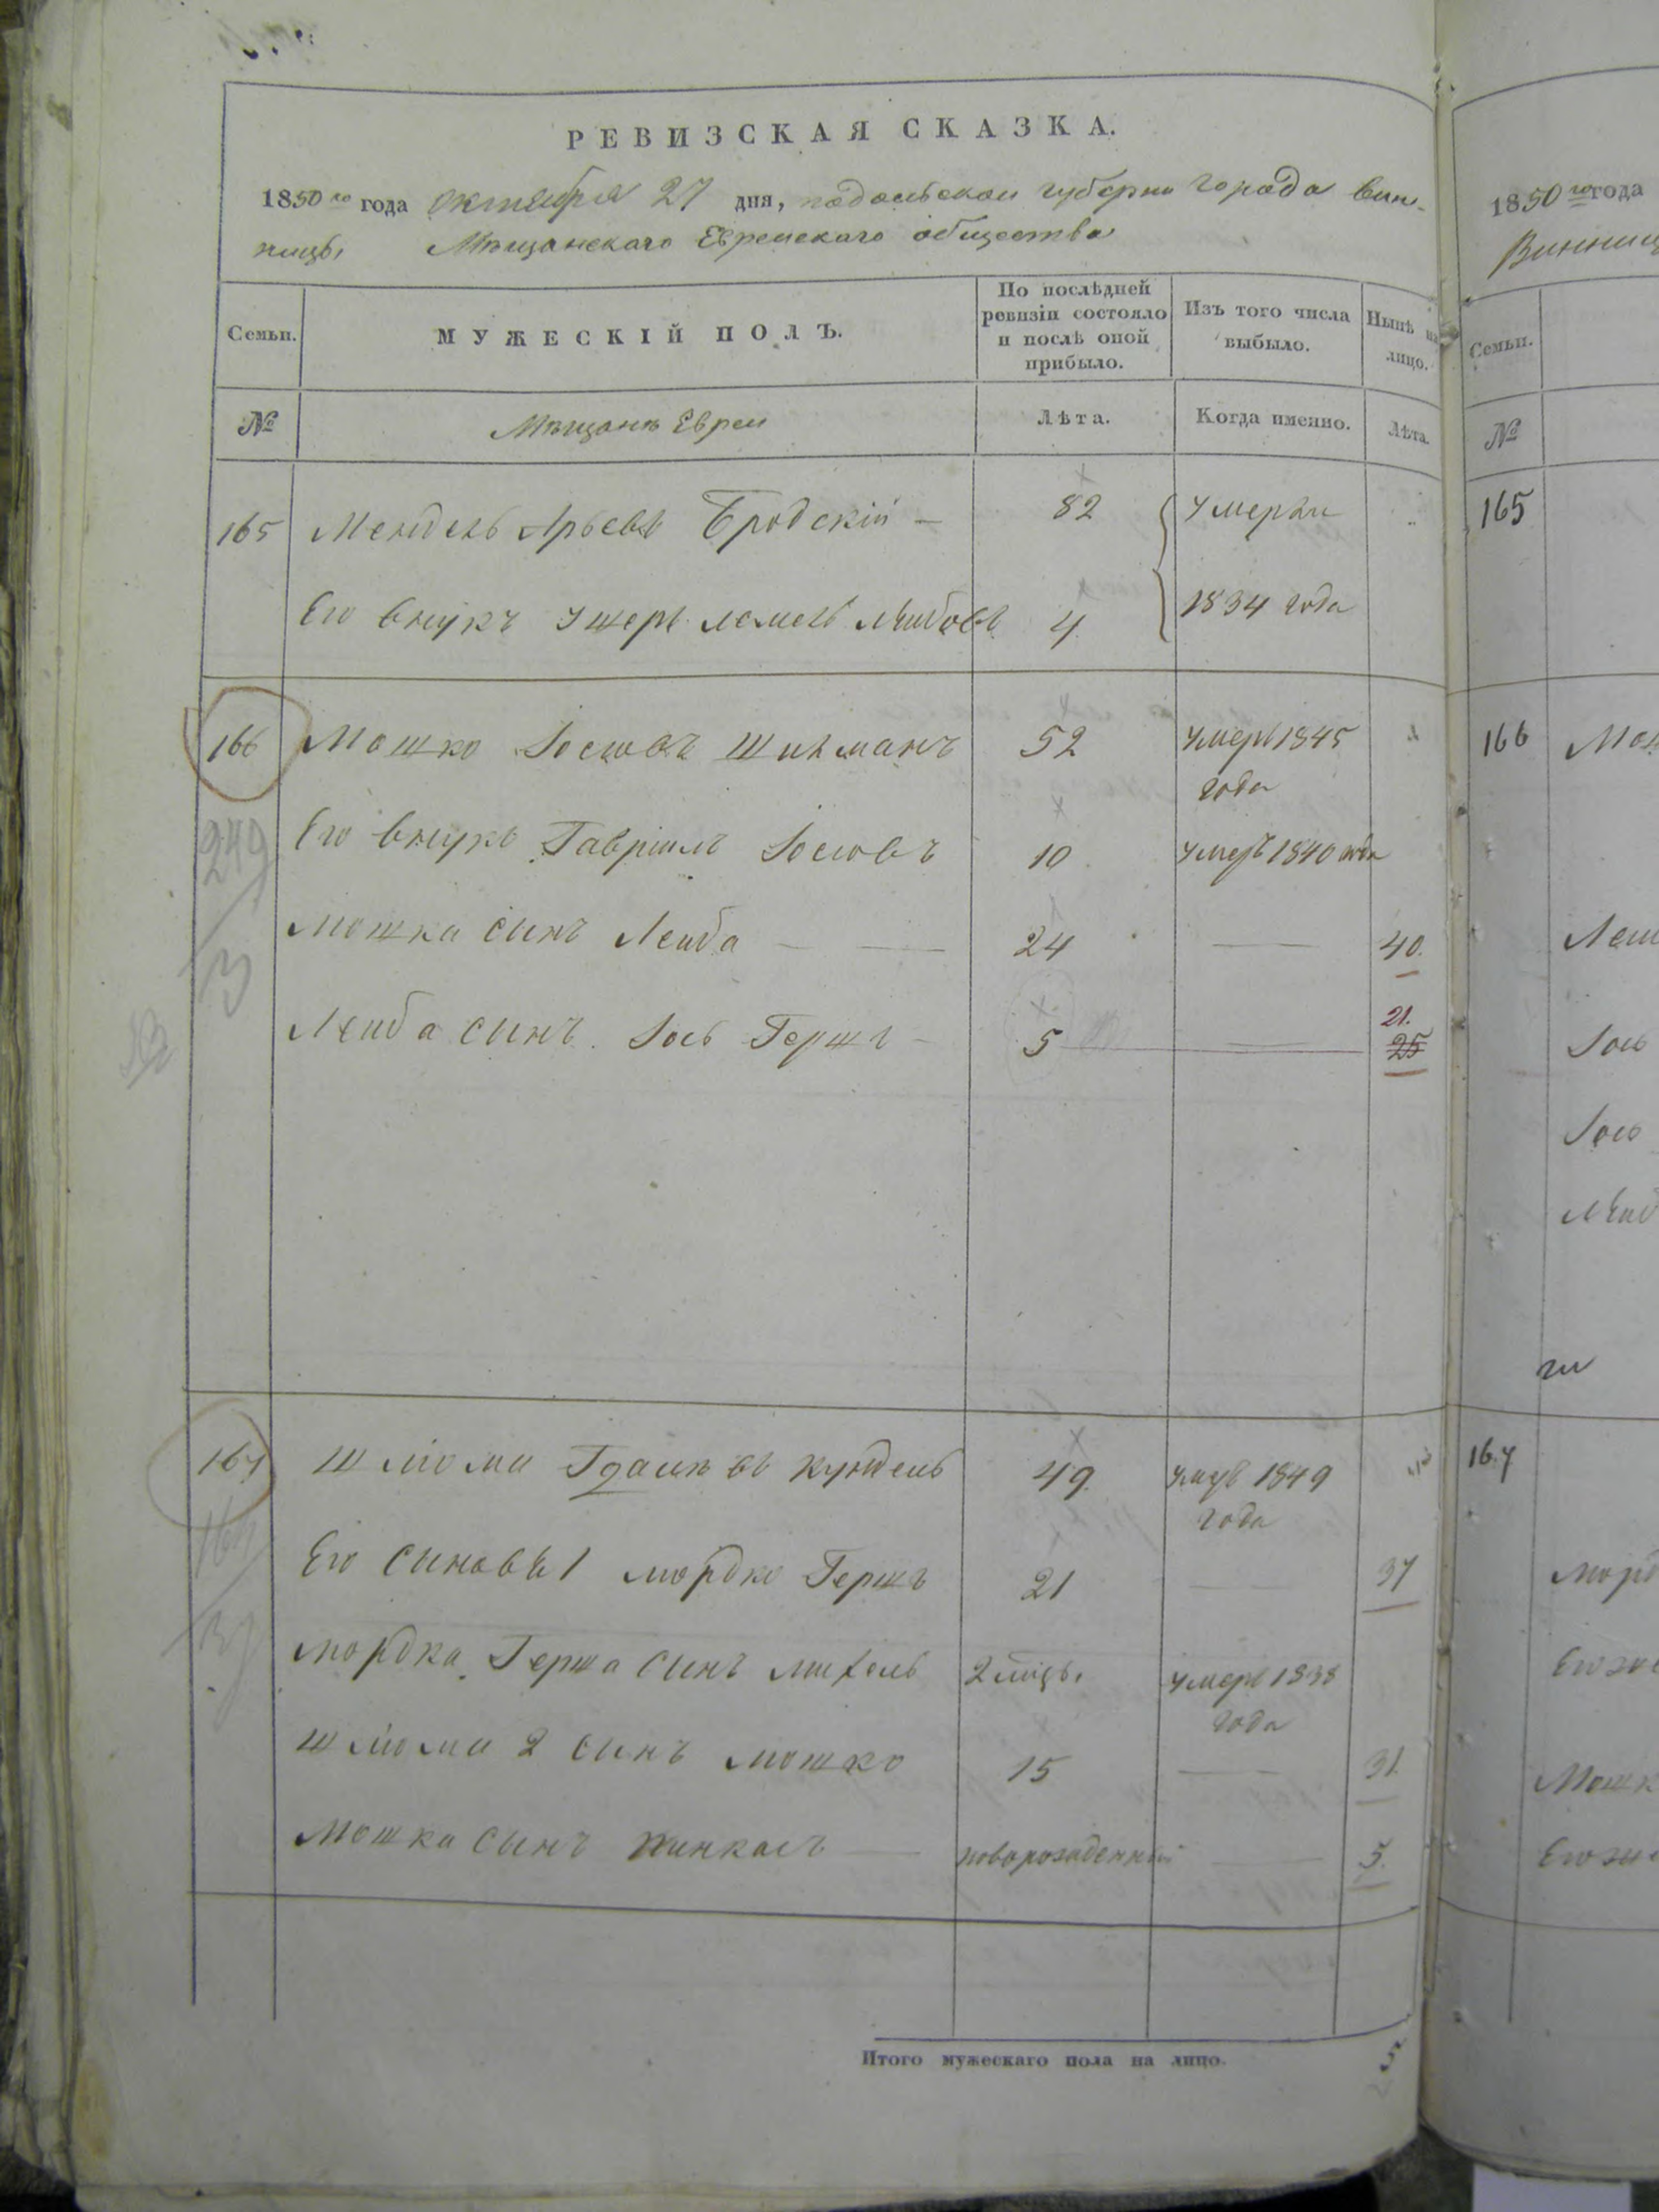 РЕВИЗСКАЯ СКАЗКА.
1850го года октября 27 дня, подольской губерни города Вин-
ницы Мѣщанскаго Еврейскаго общества
Семьи. МУЖЕСКІЙ ПОЛЪ. По послѣдней ревизіи состояло и послѣ оной прибыло. Изъ того числа выбыло. Нынѣ на лицо.
№ Мѣщане Евреи Лѣта. Когда именно. Лѣта.
165 Мендель Арьевъ Бродскій — 82 умерли
Его внукъ Ушеръ Лемель Лейбовъ 4 1834 года
166 Мошко Іосіовъ Шихманъ 52 умеръ 1845
года
Его внукъ Гавріилъ Іосіовъ 10 умеръ 1840 года
Мошка сынъ Лейба — — 24 — 40.
21.
Лейба сынъ Іось Гершъ — 5 — 25
249
3
167 Шліома кундель 49. умеръ 1849
года
Его синовья 1 мордко Гершъ 21 — 37
мордка Герша синъ михель 2 мѣць. умеръ 1838
года
Шліома 2 синъ мошко 15 — 31.
Мошка сынъ пинкасъ — новорожденный — 5.
Итого мужескаго пола на лицо. 5
1850го года
Винниц
Семьи.
№
165
166 Мош
Лей
Іось
Іось
Лейб
167
Морд
Его же
Мошк
Его же